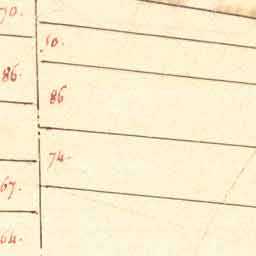 70.
50.
86.
86
74.
67.
64.